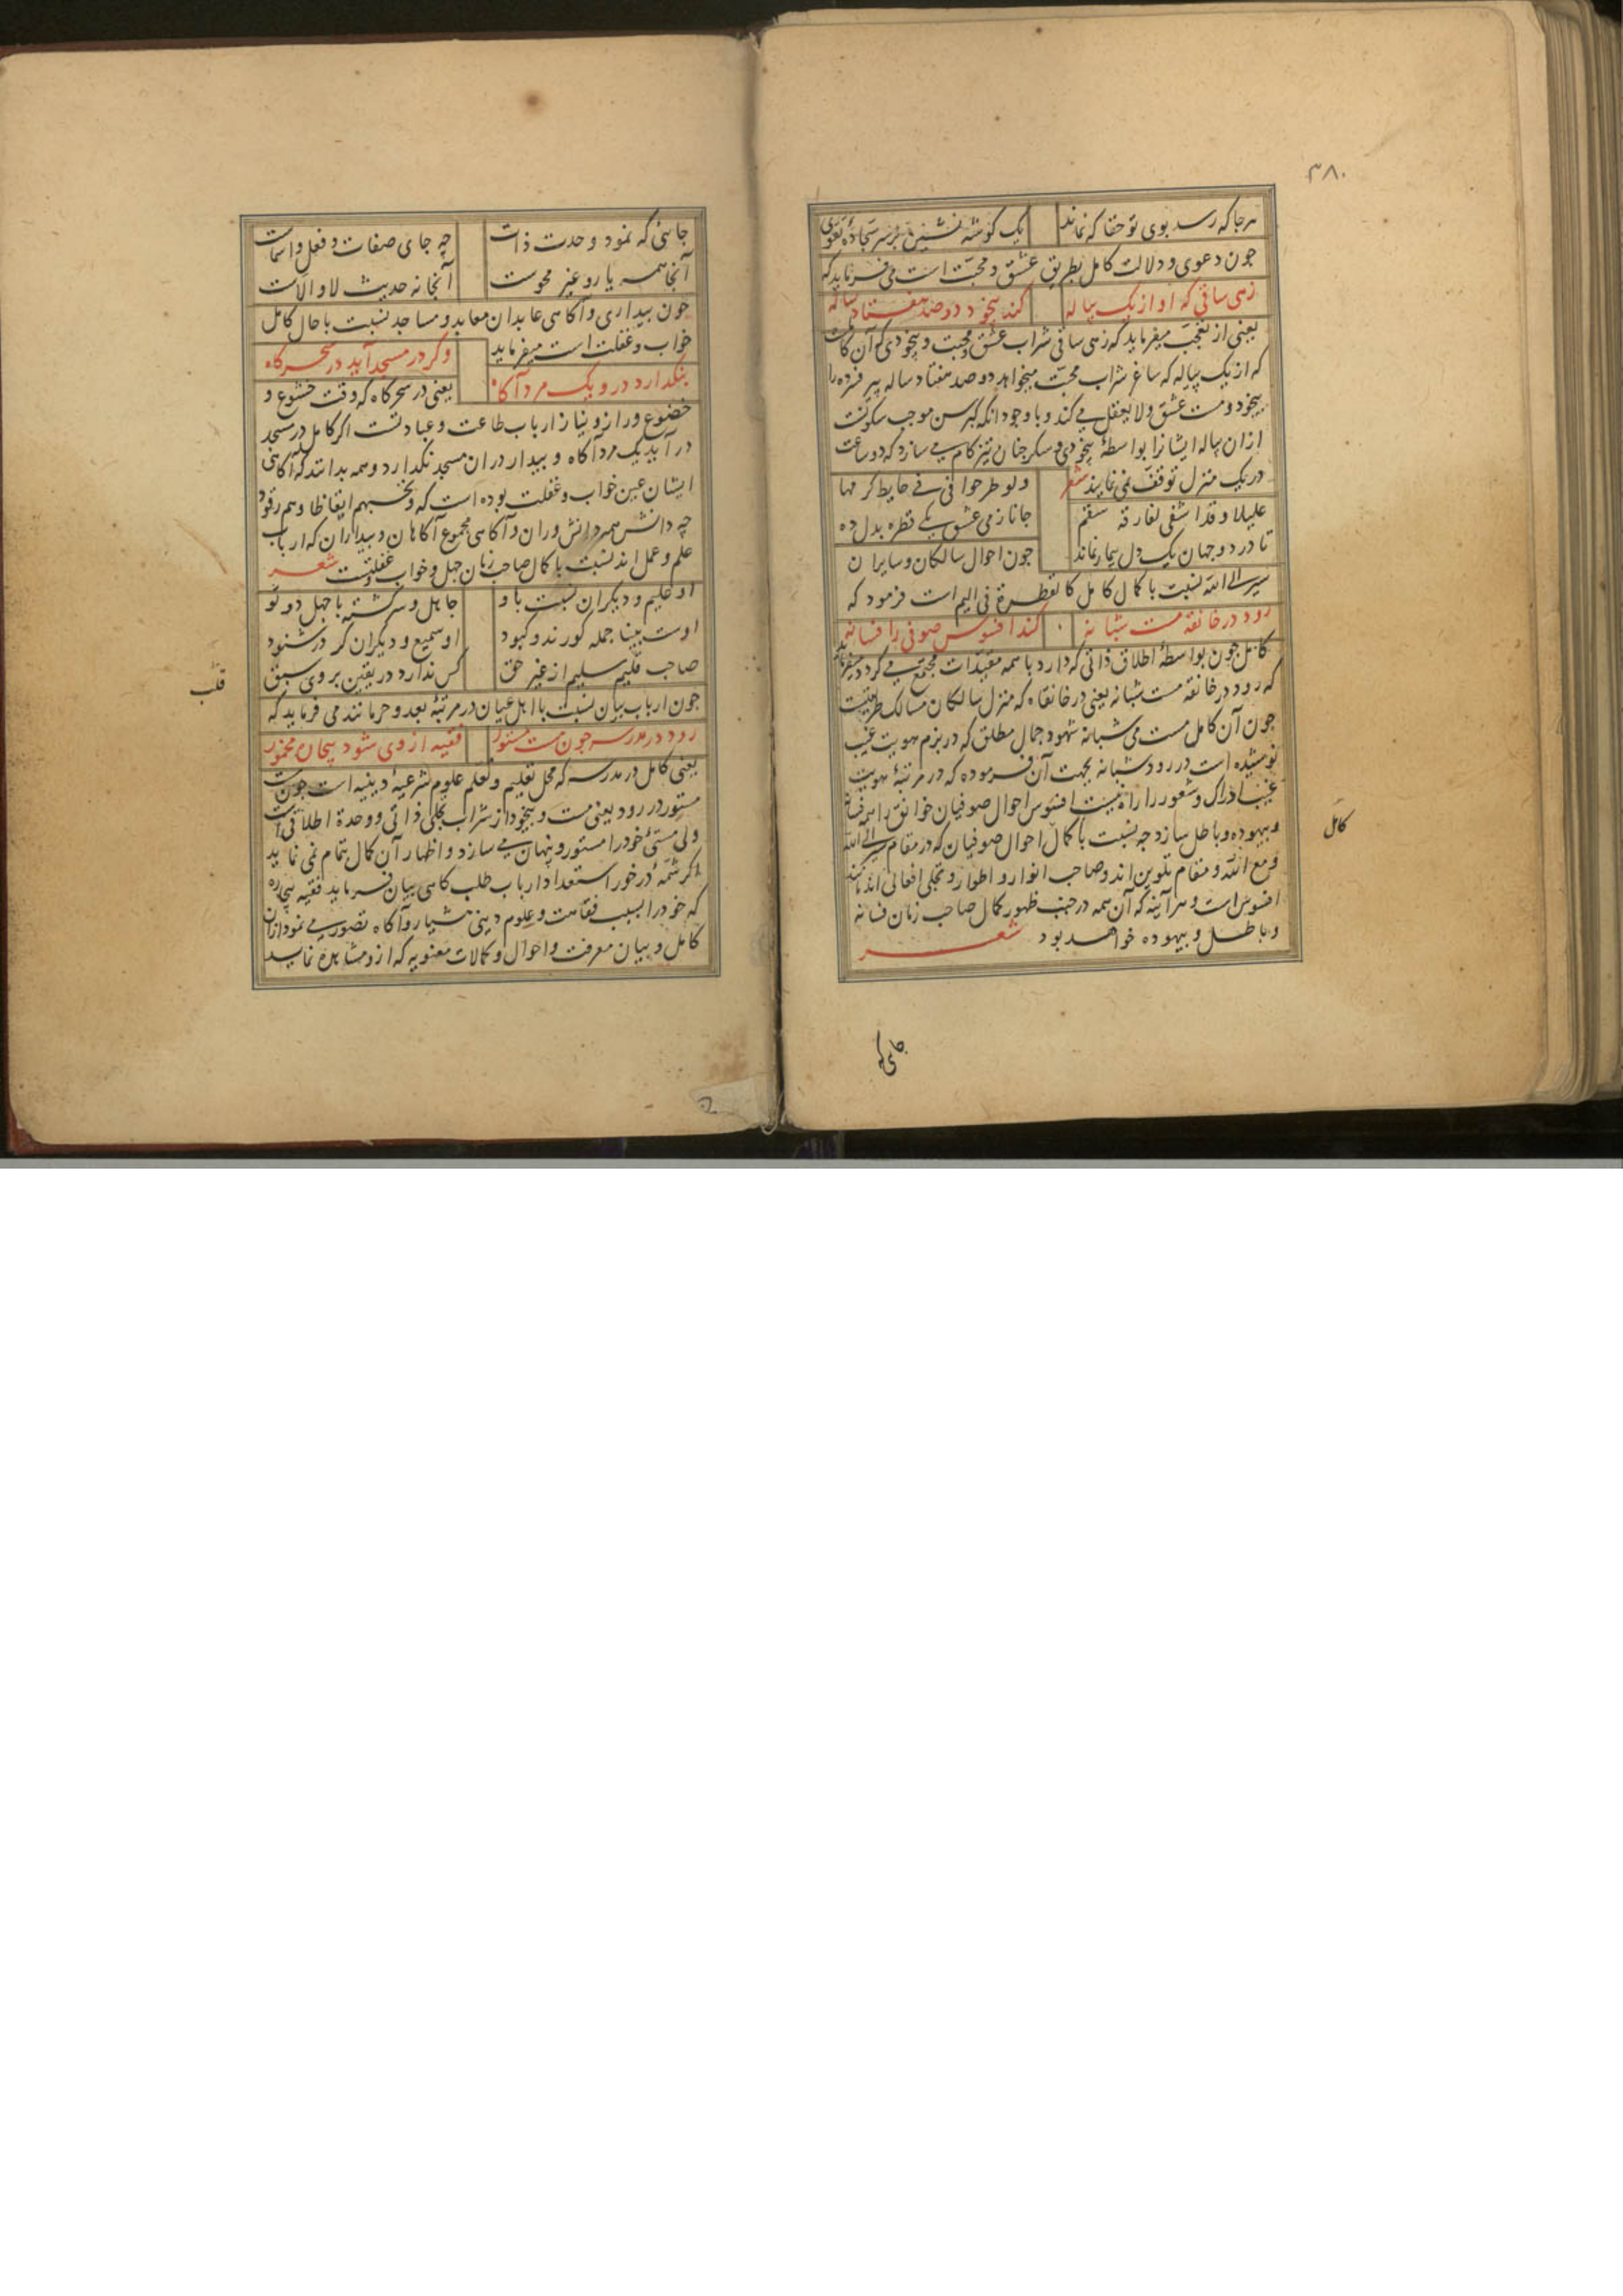 ۳۸۰
هرجا که رسد بوی تو حقا که نماند یک گوشه نشین بر سر سجاده تقوی
چون دعوی و دلالت کامل بطریق عشق و محبت است می فرماید که
زهی ساقی که او از یک پیاله کند بیخود دو صد هفتاد ساله
یعنی از تعجب میفرماید که زهی ساقی شراب عشق و محبت و بیخودی که آن کاملست
که از یک پیاله که ساغر شراب محبت میخواهد دو صد هفتاد ساله پیر فسرده را
بیخود و مست عشق و لایعقل می کند و با وجود آنکه کبر سن موجب سکونت
ازان پیاله ایشانرا بواسطهٔ بیخودی و سکر چنان تیزکام می سازد که دو ساعت
در یک منزل توقف نمی نمایند شعر
ولو طرحوا فی فی حایط کرمها
علیلا و قد اشفی لفارقه سقم
جانا ز می عشق یکی قطره بدل ده
تا در دو جهان یک دل بیمار نماند
چون احوال سالکان و سایران
سیر الی الله نسبت با کمال کامل کالقطرة فی الیم است فرمود که
رود در خانقه مست شبانه کند افسوس صوفی را فسانه
کامل چون بواسطهٔ اطلاق ذاتی که دارد با همه مقیدات مجتمع می گردد میفرماید
که رود در خانقه مست شبانه یعنی در خانقاه که منزل سالکان مسالک طریقت
چون آن کامل مست می شبانه شهود جمال مطلق که در بزم هویت غیب
نوشیده است در رود شبانه بجهت آن فرموده که در مرتبهٔ هویت
غیب ادراک و شعور را راه نیست افسوس احوال صوفیان خوانق را فسانه
و بیهوده و باطل سازد چه نسبت با کمال احوال صوفیان که در مقام سیر الی الله
و مع الله و مقام تلوین اند و صاحب انوار و اطوار و تجلی افعالی اند
افسوس است و هر آینه که آن همه در جنب ظهور کمال صاحب زمان فسانه
و باطل و بیهوده خواهد بود شعر
کامل
جای که
جائی که نمود وحدت ذات چه جای صفات و فعل و اسماست
آنجا همه یار و غیر محوست آنجا نه حدیث لا و الاست
چون بیداری و آکاهی عابدان معابد و مساجد نسبت با حال کامل
خواب و غفلت است میفرماید وکر در مسجد آید در سحرکاه
بنکذارد درو یک مرد آکاه یعنی در سحرکاه که وقت خشوع و
خضوع و راز و نیاز ارباب طاعت و عبادتست اکر کامل در مسجد
در آید یک مرد آکاه و بیدار دران مسجد نکذارد و همه بدانند که آکاهی
ایشان عین خواب و غفلت بوده است که وتحسبهم ایقاظا وهم رقود
چه دانش همه دانش وران و آکاهی مجموع آکاهان و بیداران که ارباب
علم و عمل اند نسبت با کمال صاحب زمان جهل و خواب غفلتست شعر
او علیم و دیکران نسبت باو جاهل و سرکشته با جهل دو تو
اوست بینا جمله کورند و کبود او سمیع و دیکران کر در شنود
صاحب قلبم سلیم از غیر حق کس ندارد در یقین بر وی سبق
چون ارباب بیان نسبت با اهل عیان در مرتبهٔ بعد و حرمانند می فرماید که
رود در مدرسه چون مست مستور فقیه از وی شود بیچاره مخمور
یعنی کامل در مدرسه که محل تعلیم و تعلم علوم شرعیهٔ دینیه است چون مست
مستور در رود یعنی مست و بیخود از شراب تجلی ذاتی و وحدة اطلاقی است
ولی مستی خود را مستور و پنهان می سازد و اظهار آن کمال بتمام نمی نماید
اکر شمهٔ در خور استعداد ارباب طلب کاهی بیان فرماید فقیه بیچاره
که خود را بسبب فقاهت و علوم دینی هشیار و آکاه تصور می نمود ازان
کامل و بیان معرفت و احوال و کمالات معنویه که ازو مشاهده نماید
قلب